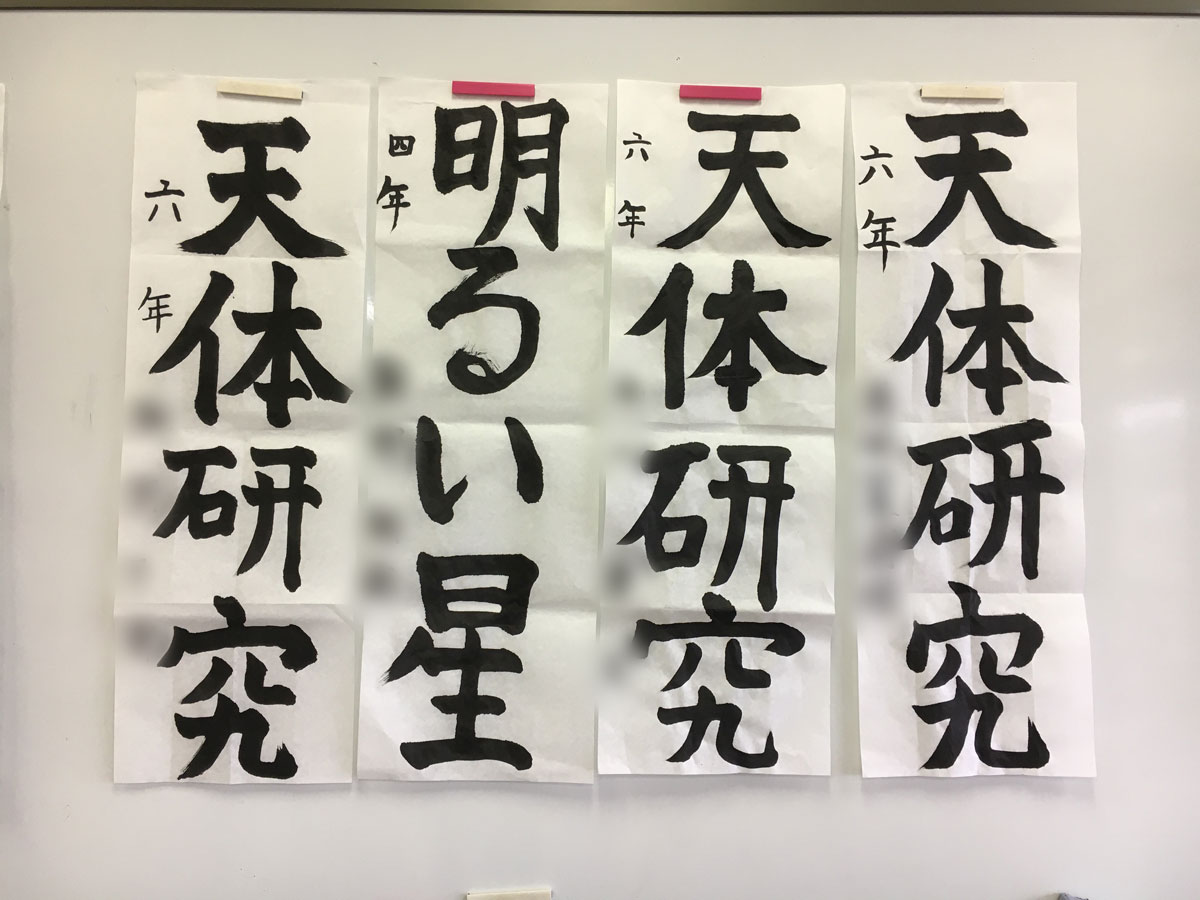 天体研究
六年
天体研究
六年
明るい星
四年
天体研究
六年